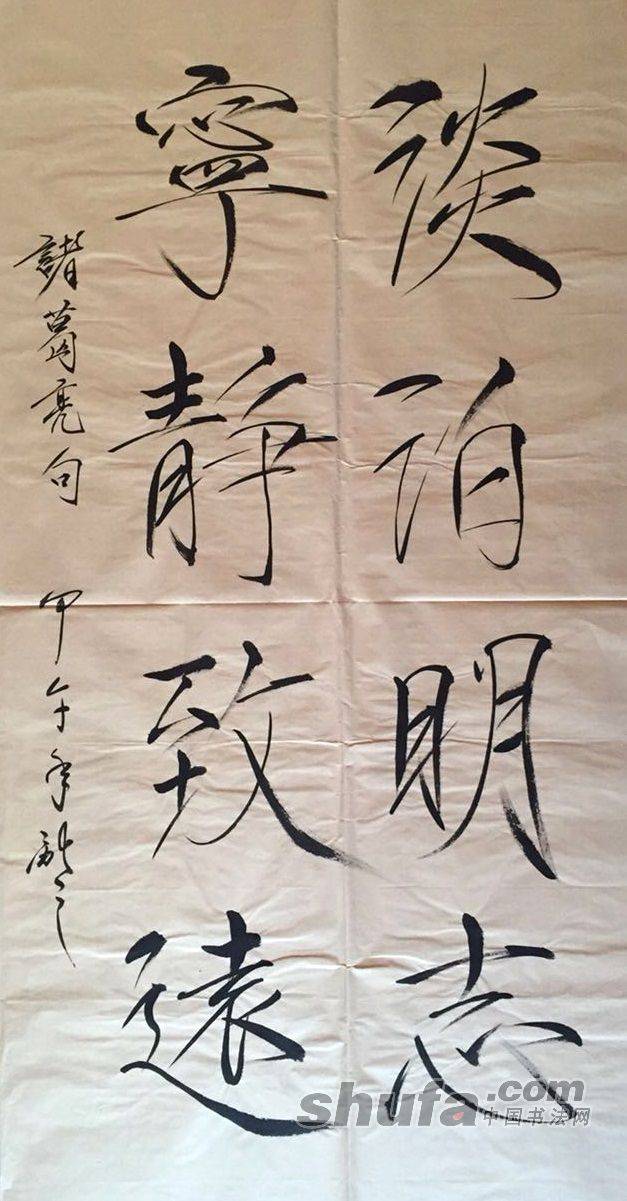 淡泊明志
寧靜致遠
諸葛亮句 甲午年
shufa.com
中国书法网